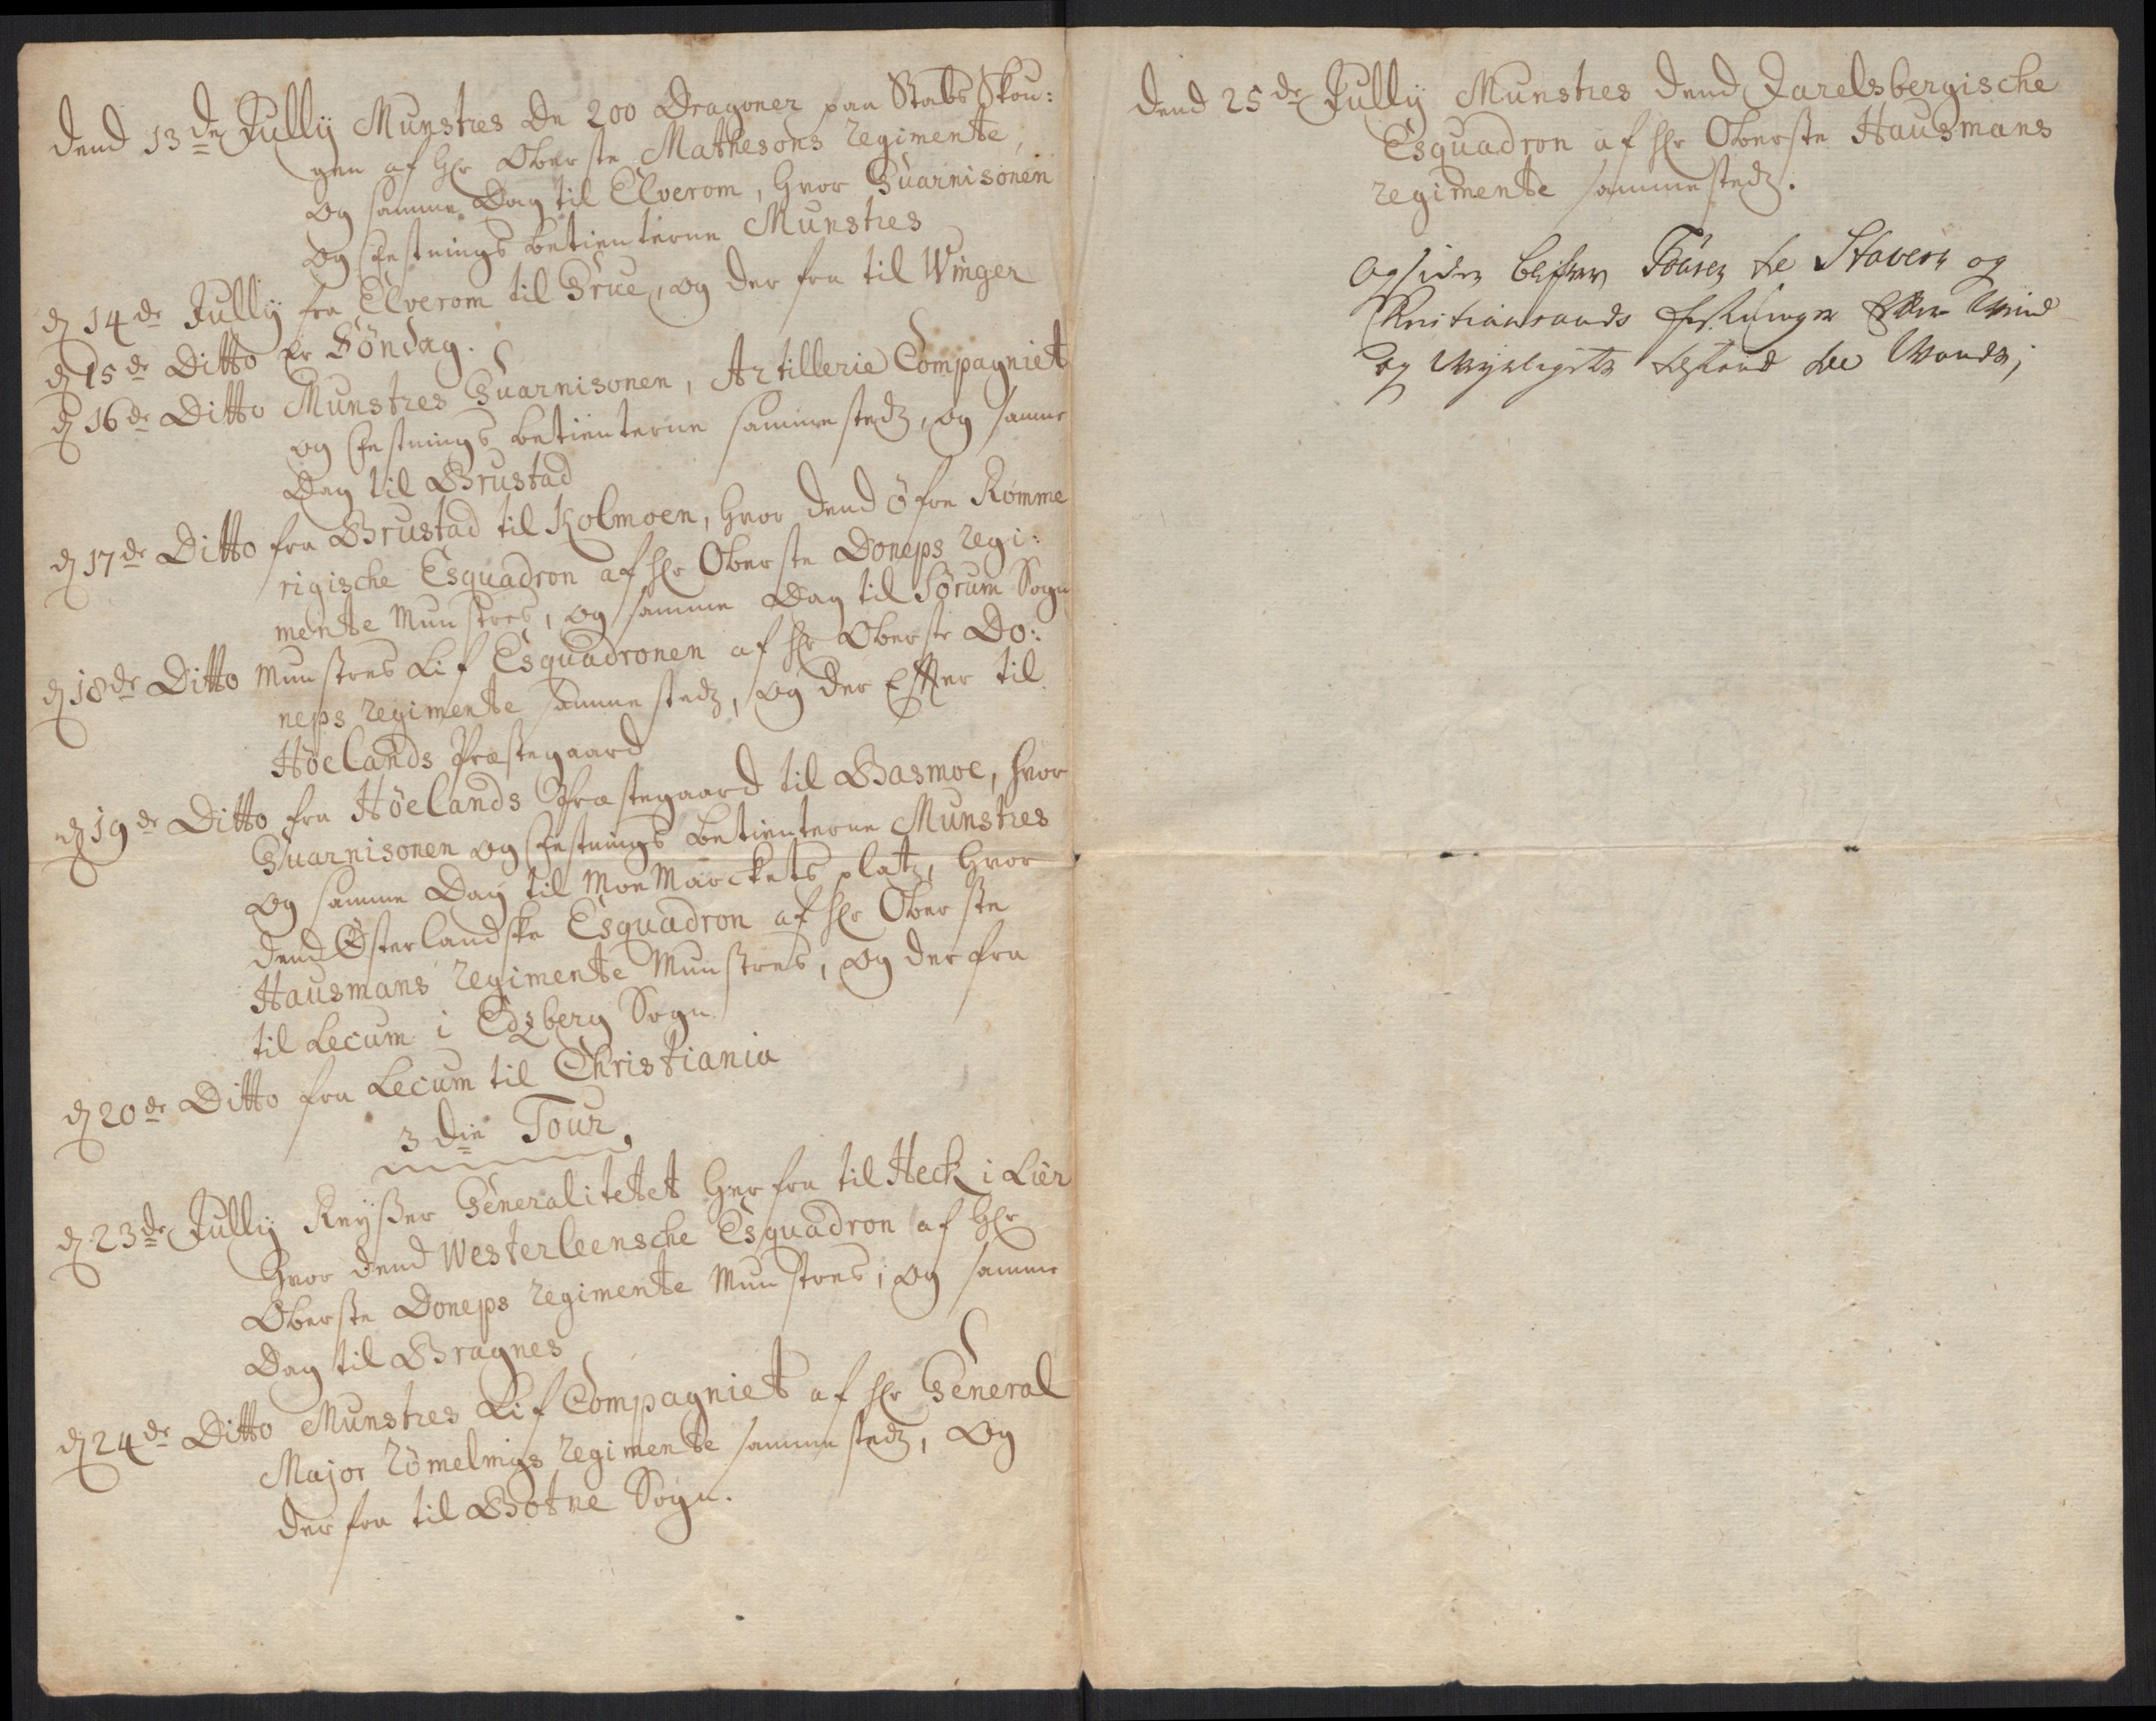 Dend 13de Jullÿ Munstres De 200 Dragoner paa Stabs Skou:
gen af Hr Oberste Mathesons regimente,
og samme Dag til Elverom, hvor Guarnisonen
og Festnings betienterne Munstres
d 14de Jullÿ fra Elverom til Grue, og der fra til Winger
d 15de Ditto Er Söndag.
d 16de Ditto Munstres Guarnisonen, Artillerie Compagniet
og Festnings betienterne sammestedz, og samme
Dag til Brustad
d 17de Ditto fra Brustad til Kolmoen, hvor dend öfre Romme
rigische Esquadron af Hr Oberste Doneps regi:
mente Munstres, og samme Dag til Sörum Sogn
d 18de Ditto Munstres Lif Esquadronen af Hr Oberste Do:
neps regimente sammestedz, og der Effter til
Höelands Præstegaard
d 19de Ditto fra Höelands Præstegaard til Basmoe, hvor
Guarnisonen og Festnings betienterne Munstres
og samme Dag til Moe Marckets platz, hvor
dend Österlandske Esquadron af Hr Oberste
Hausmans regimente Munstres, og der fra
til Lecum i Edsberg Sogn
d 20de Ditto fra Lecum til Christiania
3die Tour,
d 23de Jullÿ Reyßer Generalitetet her fra til Heck i Lier
hvor dend Westerleensche Esquadron af Hr
Oberste Doneps regimente Munstres, og samme
Dag til Bragnes
d 24de Ditto Munstres Lif Compagniet af Hr General
Major Römelings regimente sammestedz, og
der fra til Botne Sogn.
Dend 25de Jullÿ Munstres Dend Jarelsbergische
Esquadron af Hr Oberste Hausmans
regimente sammestedz.
og siden blifver Touren te Stavern og
Christiansands festninger Efter Wind
og Weyrligets